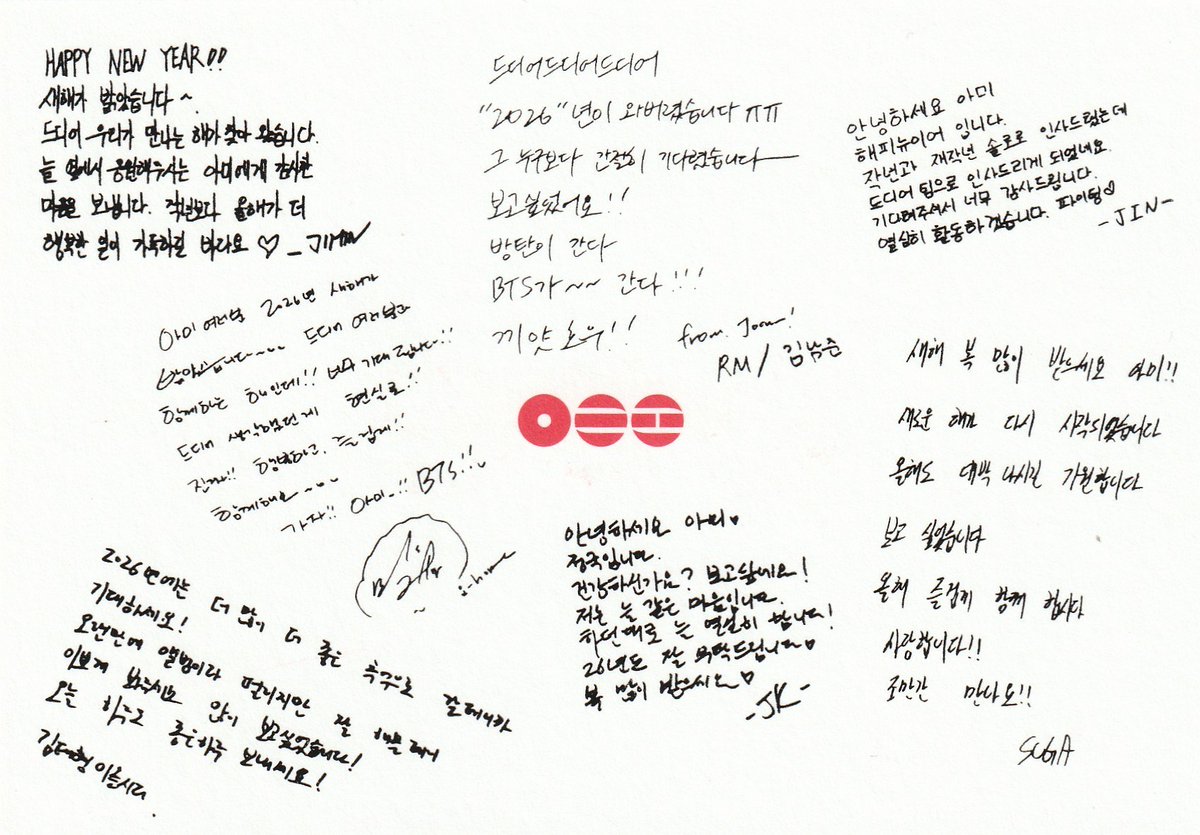 HAPPY NEW YEAR!!
새해가 밝았습니다~
드디어 우리가 만나는 해가 찾아 왔습니다.
늘 옆에서 응원해주시는 아미에게 감사한
마음을 보냅니다. 작년보다 올해가 더
행복한 일이 가득하길 바라요 ♡ - JIMIN
드디어드디어드디어
"2026"년이 와버렸습니다 ㅠㅠ
그 누구보다 간절히 기다렸습니다
보고싶었어요!!
방탄이 간다
BTS가~~ 간다!!!
끼얏호우!!
from. Joon!
RM / 김남준
안녕하세요 아미
해피뉴이어 입니다.
작년과 재작년 솔로로 인사드렸는데
드디어 팀으로 인사드리게 되었네요.
기다려주셔서 너무 감사드립니다.
열심히 활동하겠습니다. 파이팅♡
-JIN-
아미 여러분 2026년 새해가
밝았습니다~~ 드디어 여러분과
함께하는 해인데!! 너무 기대됩니다!!
드디어 생각했던게 현실로!!
진짜!! 행복하고, 즐겁게!!
함께해요~~
가자!! 아미..!! BTS!!
j-hope
새해 복 많이 받으세요 아미!!
새로운 해가 다시 시작되었습니다
올해도 대박 나시길 기원합니다
보고 싶었습니다
올해 즐겁게 함께 합시다
사랑합니다!!
조만간 만나요!!
SUGA
2026년에는 더 많이 더 좋은 추억으로 갈테니까
기대하세요!
오랜만에 앨범이라 떨리지만 잘 해볼테니
이쁘게 봐주시요 많이 보고싶었습니다!
오늘 하루도 좋은하루 보내세요!
김태형이올시다.
안녕하세요 아미♥
정국입니다.
건강하신가요? 보고싶네요!
저는 늘 같은 마음입니다.
하던대로 늘 열심히 합니다!
26년도 잘 부탁드립니다♥
복 많이 받으세요♥
-JK-